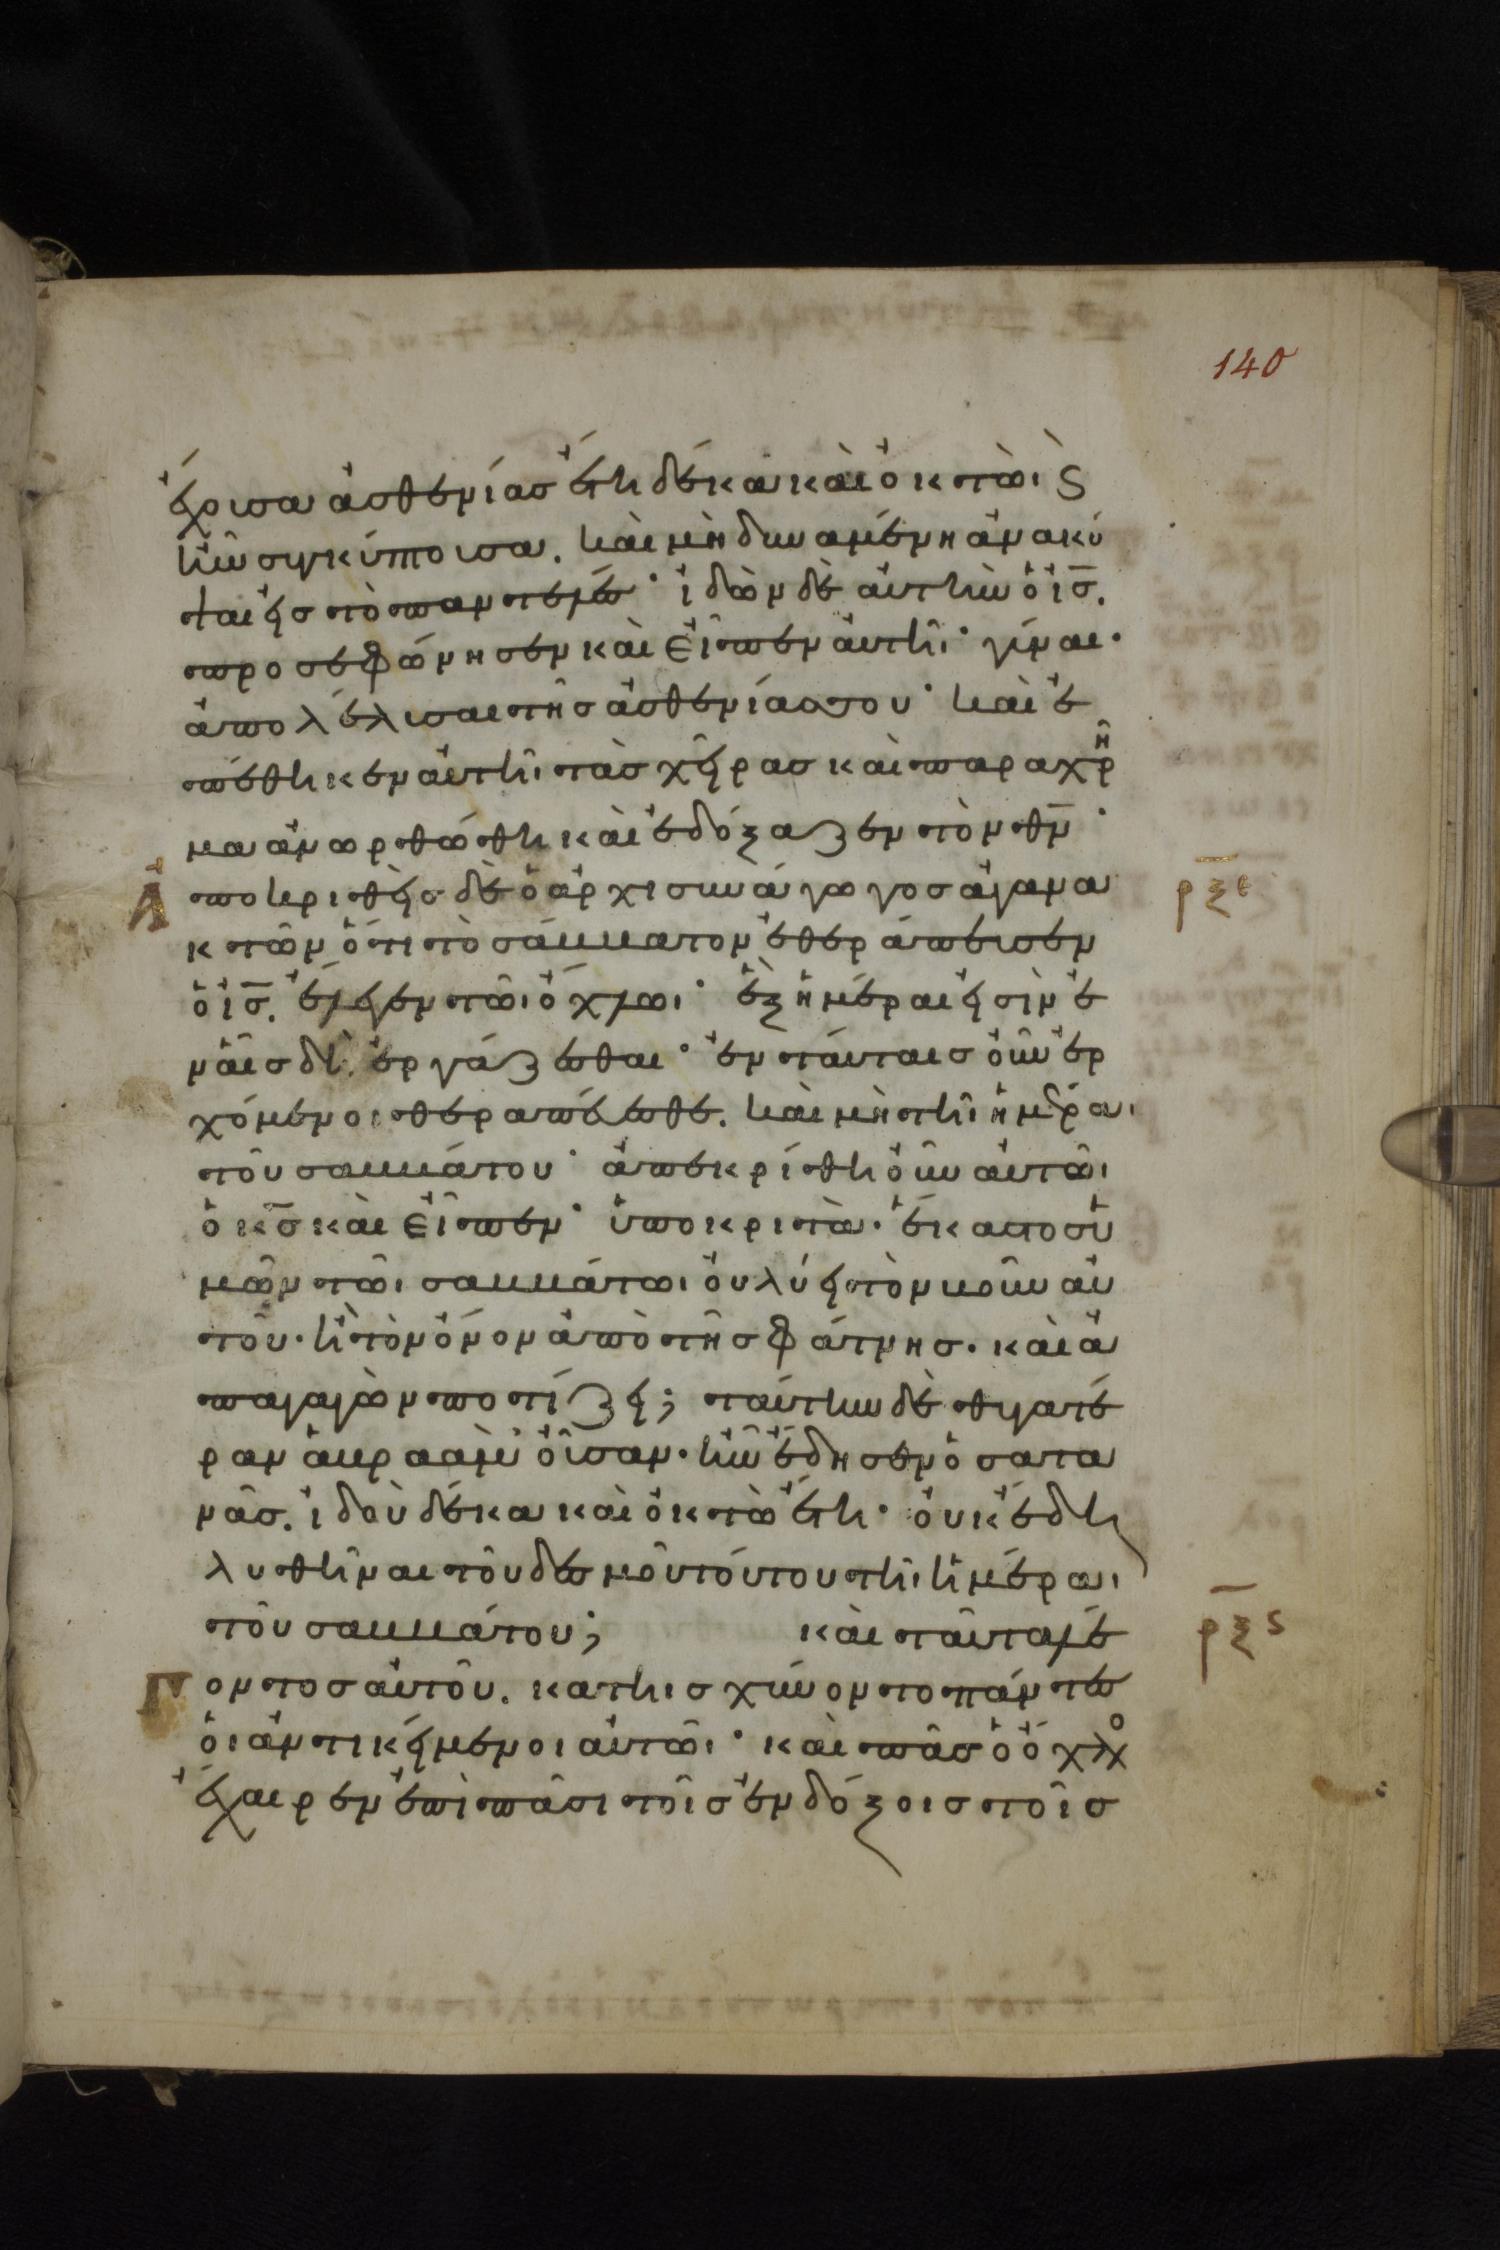 140
ἔχουσα ἀσθενίας ἔτη δέκα καὶ ὀκτὼ· ϛ
ἦν συγκύπτουσα. καὶ μὴ δυναμένη ἀνακύ
ψαι εἰς τὸ παντελές· ἰδὼν δὲ αὐτὴν ὁ ις.
προσεφώνησεν καὶ εἶπεν αὐτῆι· γύναι·
ἀπολέλυσαι τῆς ἀσθενίας σου· καὶ ἐ
πέθηκεν αὐτῆι τὰς χεῖρας καὶ παραχρῆ
μα ἀνωρθώθη καὶ ἐδόξαζεν τὸν θν·
Ἀ
ποκριθεὶς δὲ ὁ ἀρχισυνάγωγος ἀγανα
ρξε
κτῶν ὅτι τὸ σάββατον ἐθεράπευσεν
ὁ ις. ἔλεγεν τῶι ὄχλωι· ἓξ ἡμέραι εἰσὶν ἐ
ν αἷς δεῖ ἐργάζεσθαι· ἐν ταύταις οὖν ἐρ
χόμενοι θεραπεύεσθε. καὶ μὴ τῆι ἡμέραι
τοῦ σαββάτου· ἀπεκρίθη οὖν αὐτῶι
ὁ κς καὶ εἶπεν· ὑποκριτὰ· ἕκαστος ὑ
μῶν τῶι σαββάτωι οὐ λύει τὸν βοῦν αὐ
τοῦ· ἢ τὸν ὄνον ἀπὸ τῆς φάτνης· καὶ ἀ
παγαγὼν ποτίζει; ταύτην δὲ θυγατέ
ραν ἀβρααμ οὖσαν· ἣν ἔδησεν ὁ σατα
νᾶς. ἰδοὺ δέκα καὶ ὀκτὼ ἔτη· οὐκ ἔδει
λυθῆναι τοῦ δεσμοῦ τούτου τῆι ἡμέραι
τοῦ σαββάτου; καὶ ταῦτα λέ
ρξϛ
Γ
οντος αὐτοῦ. κατηισχύνοντο πάντες
οἱ ἀντικείμενοι αὐτῶι· καὶ πᾶς ὁ ὄχλο
ἔχαιρεν ἐπὶ πᾶσι τοῖς ἐνδόξοις τοῖς